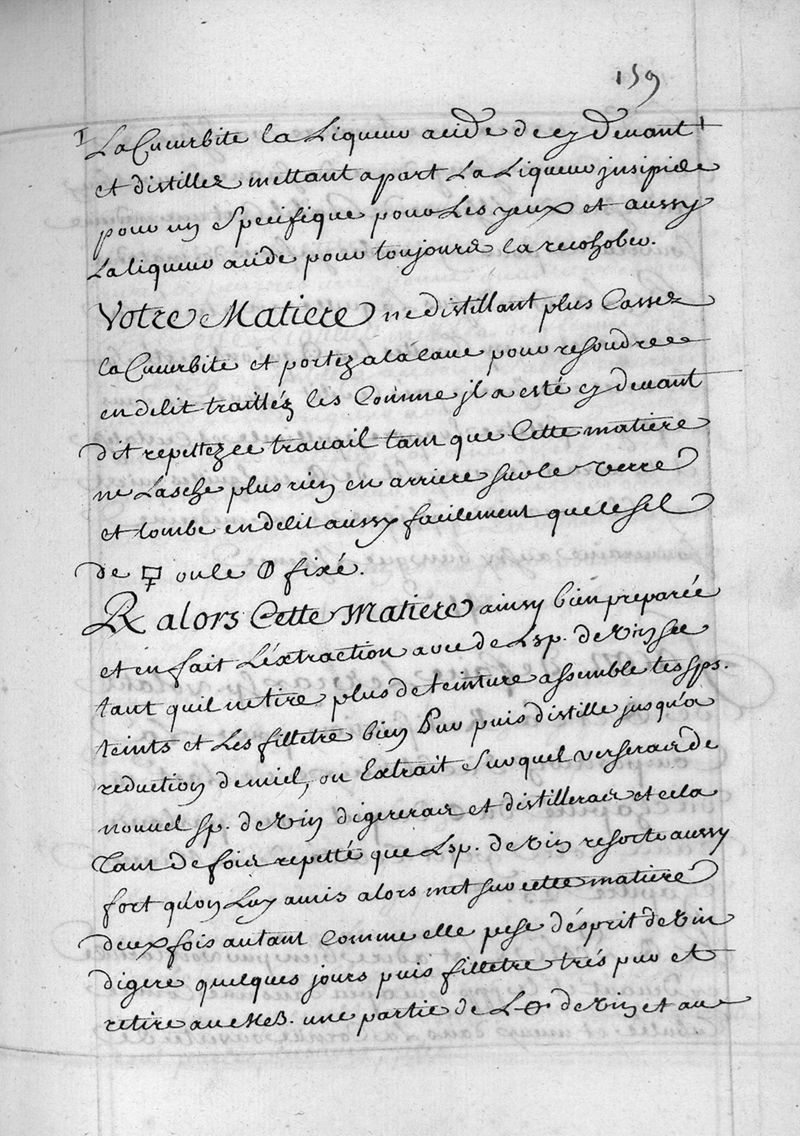 159
La Cucurbite la Liqueur acide de cy devant
et distillez mettant apart La Liqueur jnsipide
pour un Specifique pour Les yeux et aussy
La liqueur acide pour toujours la recohober.
Votre Matiere ne distillant plus Cassez
la Cucurbite et portez a la Cave pour resoudre
en delit traittéz les Comme jl a esté cy devant
dit repettez ce travail tant que Cette matiere
ne Lasche plus rien en arriere sur le verre
et tombe en delit aussy facilement que le sel
de 🜿 ou le fixé.
℞ alors Cette Matiere ainsy bien preparée
et en fait L'extraction avec de L sp. de vin
tant quil ne tire plus de teinture assemble tes sps.
teints et Les filletre bien Pur puis distille jusqu'a
reduction de miel, ou Extrait Surquel verseras de
nouvel sp. de vin digereras et distilleras et cela
Tant de fois repetté que L sp. de vin resorte aussy
fort qu'on Luy a mis alors met sur cette matiere
deux fois autant Comme elle pese d'esprit de vin
digere quelques jours puis filletre trés pur et
retire au MB. une partie de L de vin et au